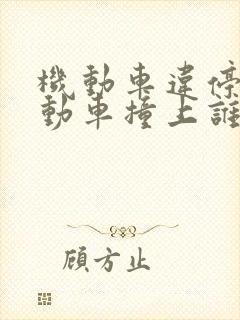 機動車違停
動車撞上誰
顧方止